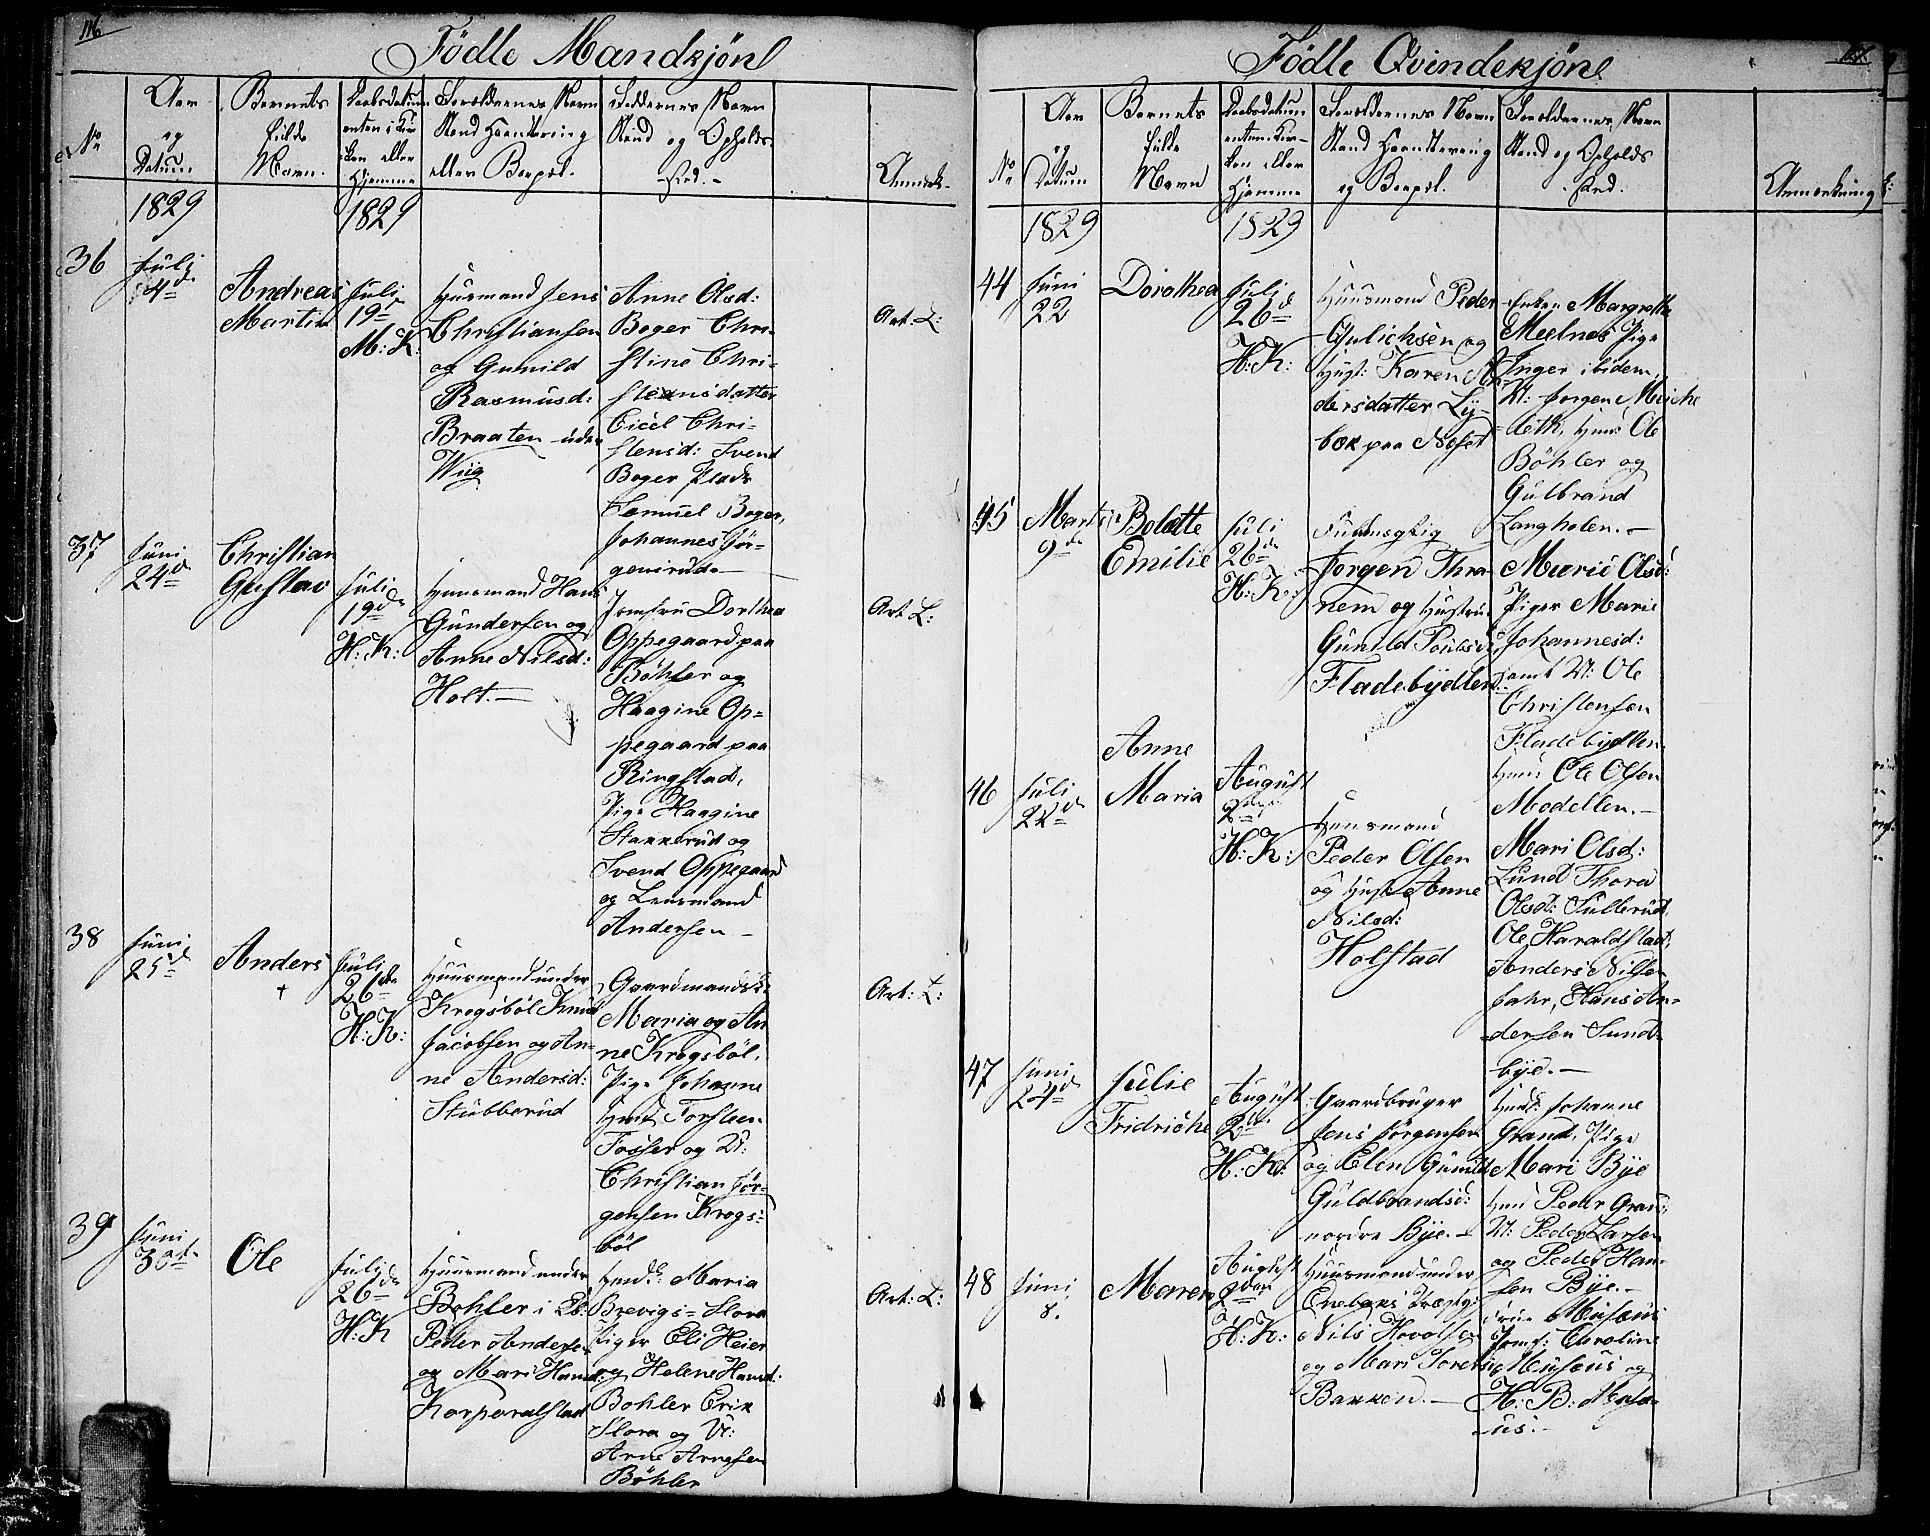 116
Födte Mandkjön
No
Aar og Datum.
Barnets fulde Navn.
Daabsdatum enten i Kirken eller Hjemme
Forældrernes Navn Stand Haandtering eller Bopæl.
Faddernes Navn Stand og Opholds Sted.
Anmærk-
1829
1829
36
Juli
4d
Andreas
Martin
Juli
19
M: K:
Huusmand Jens
Christiansen
og Gunild
Rasmusd:
Braaten under
Wiig
Anne Olsd:
Boger Chri-
stine Chri-
stensdatter
Cicel Chri-
stensd: Svend
Boger Plads
Samuel Boger,
Johannes Jör-
gensrud
Art. L:
37
Juni
24d
Christian
Gustav
Juli
19de
H: K:
Huusmand Hans
Gundersen og
Anne Nilsd:
Holt.
Jomfru Dorthea
Oppegaard paa
Böhler og
Haagine Op-
pegaard paa
Ringstad,
Pige Haagine
Stakkerud og
Svend Oppegaard
og Lensmand
Andersen
Art L:
38
Juni
25d
Anders
+
Juli
26de
H: K:
Huusmand under
Krogsböl Knud
Jacobsen og An-
ne Andersd:
Stubberud
Gaardmands
Maria og An
ne Krogsböl,
Pige Johanne
Torsteen
Fosser og
Christian Jör-
gensen Krogs-
böl
Art: L:
39
Juni
30
Ole
Juli
26de
H: K
Huusmand under
Bohler i
Peder Anderse
og Mari Hansd:
Korporalstad
Maria
Brevigs- Flora
Piger Eli Heier
og Helene Hansd:
Bohler Erik
Flora og
Arne Arnesen
Böhler
Art: L:
Födte Qvindekjön
No
Aar og Datum
Barnets fulde Navn
Daabsdatum enten i Kirken eller Hjemme
Forældrernes Navn Stand Haandtering og Bopæl.
Forældrernes Navn Stand og Opholds Sted.
Anmærkning
1829
1829
44
Juni
22
Dorothea
Juli
26de
H: K:
Huusmand Peder
Gulichsen og
Hust: Karen An
dersdatter Ly-
bek paa Neset
Enken Margrethe
Meelnes Pige
Inger ibidem,
Jörgen
Ole
Böhler og
Gulbrand
Langholen.
45
Marts
9de
Bolette
Emilie
Juli
26de
H: K:
Jörgen Thra
nem og Hustru
Gunild Poulsd:
Fladebyedlen
Marie Olsd:
Piger Marie
Johannesd:
samt Ole
Christensen
Fladebyedlen
Ole Olsen
Modellen.
46
Juli
22d
Anne
Maria
August
2
H: K:
Huusmand
Peder Olsen
og Hust Anne
Nilsd:
Holstad
Mari Olsd:
Lund Thora
Olsd: Sulterud,
Ole Haraldstad,
Anders Nilsen
Hans An-
dersen Sund-
bye.
47
Juni
24d
Julie
Fridriche
August
2
H: K:
Gaardbruger
Jens Jörgensen
og Elen Gunild
Guldbrandsd:
nordre Bye.
Johanne
Grand, Pige
Mari Bye
Peder Grand,
Peder Larsen
og Peder Han-
sen Bye.
48
Juni
8.
Maren
August
2den
H: K:
Huusmand under
Enebaks Præstg:
Nils Hovolsen
og Mari Torersd
Bakken.
Musæus
Jomf: Caroline
Musæus og
H: B: Musæ-
us.